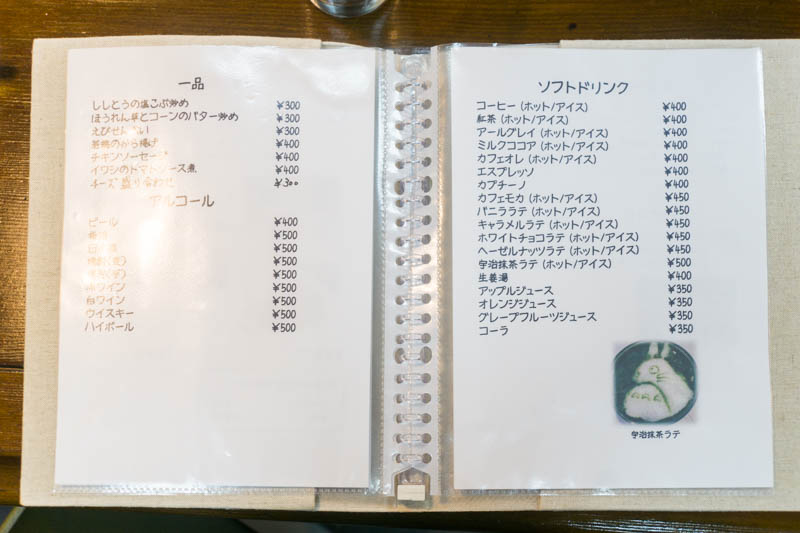 一品
ししとうの塩こぶ炒め ¥300
ほうれん草とコーンのバター炒め ¥300
えびせんべい ¥300
若鶏のから揚げ ¥400
チキンソーセージ ¥400
イワシのトマトソース煮 ¥400
チーズ盛り合わせ ¥300
アルコール
ビール ¥400
¥500
¥500
焼酎(麦) ¥500
焼酎(芋) ¥500
赤ワイン ¥500
白ワイン ¥500
ウイスキー ¥500
ハイボール ¥500
ソフトドリンク
コーヒー (ホット/アイス) ¥400
紅茶 (ホット/アイス) ¥400
アールグレイ (ホット/アイス) ¥400
ミルクココア (ホット/アイス) ¥400
カフェオレ (ホット/アイス) ¥400
エスプレッソ ¥400
カプチーノ ¥400
カフェモカ (ホット/アイス) ¥450
バニララテ (ホット/アイス) ¥450
キャラメルラテ (ホット/アイス) ¥450
ホワイトチョコラテ (ホット/アイス) ¥450
ヘーゼルナッツラテ (ホット/アイス) ¥450
宇治抹茶ラテ (ホット/アイス) ¥500
生姜湯 ¥400
アップルジュース ¥350
オレンジジュース ¥350
グレープフルーツジュース ¥350
コーラ ¥350
宇治抹茶ラテ